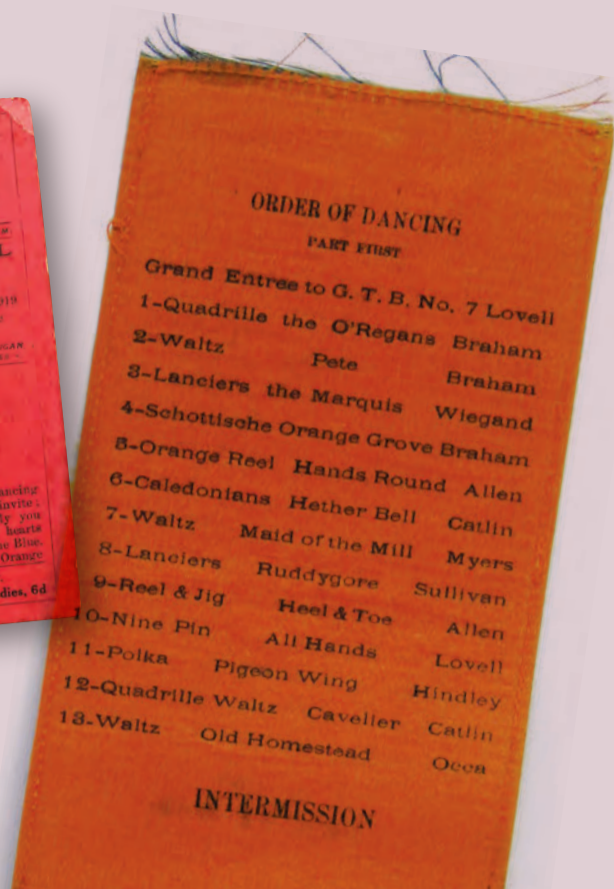 ORDER OF DANCING
PART FIRST
Grand Entree to G. T. B. No. 7 Lovell
1-Quadrille the O'Regans Braham
2-Waltz Pete Braham
3-Lanciers the Marquis Wiegand
4-Schottische Orange Grove Braham
5-Orange Reel Hands Round Allen
6-Caledonians Hether Bell Catlin
7-Waltz Maid of the Mill Myers
8-Lanciers Ruddygore Sullivan
9-Reel & Jig Heel & Toe Allen
10-Nine Pin All Hands Lovell
11-Polka Pigeon Wing Hindley
12-Quadrille Waltz Cavelier Catlin
13-Waltz Old Homestead Occa
INTERMISSION
ancing
invite
you
hearts
Blue.
Orange
dies, 6d